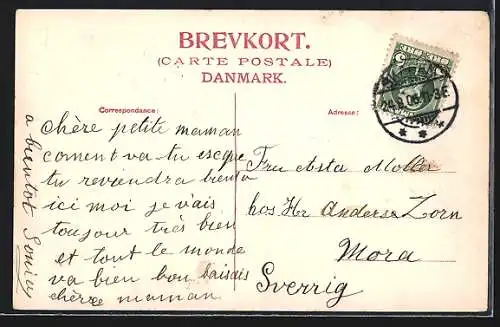 BREVKORT.
(CARTE POSTALE)
DANMARK.
Correspondance:
Adresse:
chère petite maman
coment va tu esque
tu reviendra biento
ici moi je vais
toujour très bien
et tout le monde
va bien bon baisais
chère maman
a bientot
Fru Asta Moller
hos Hr Anderse Zorn
Mora
Sverrig